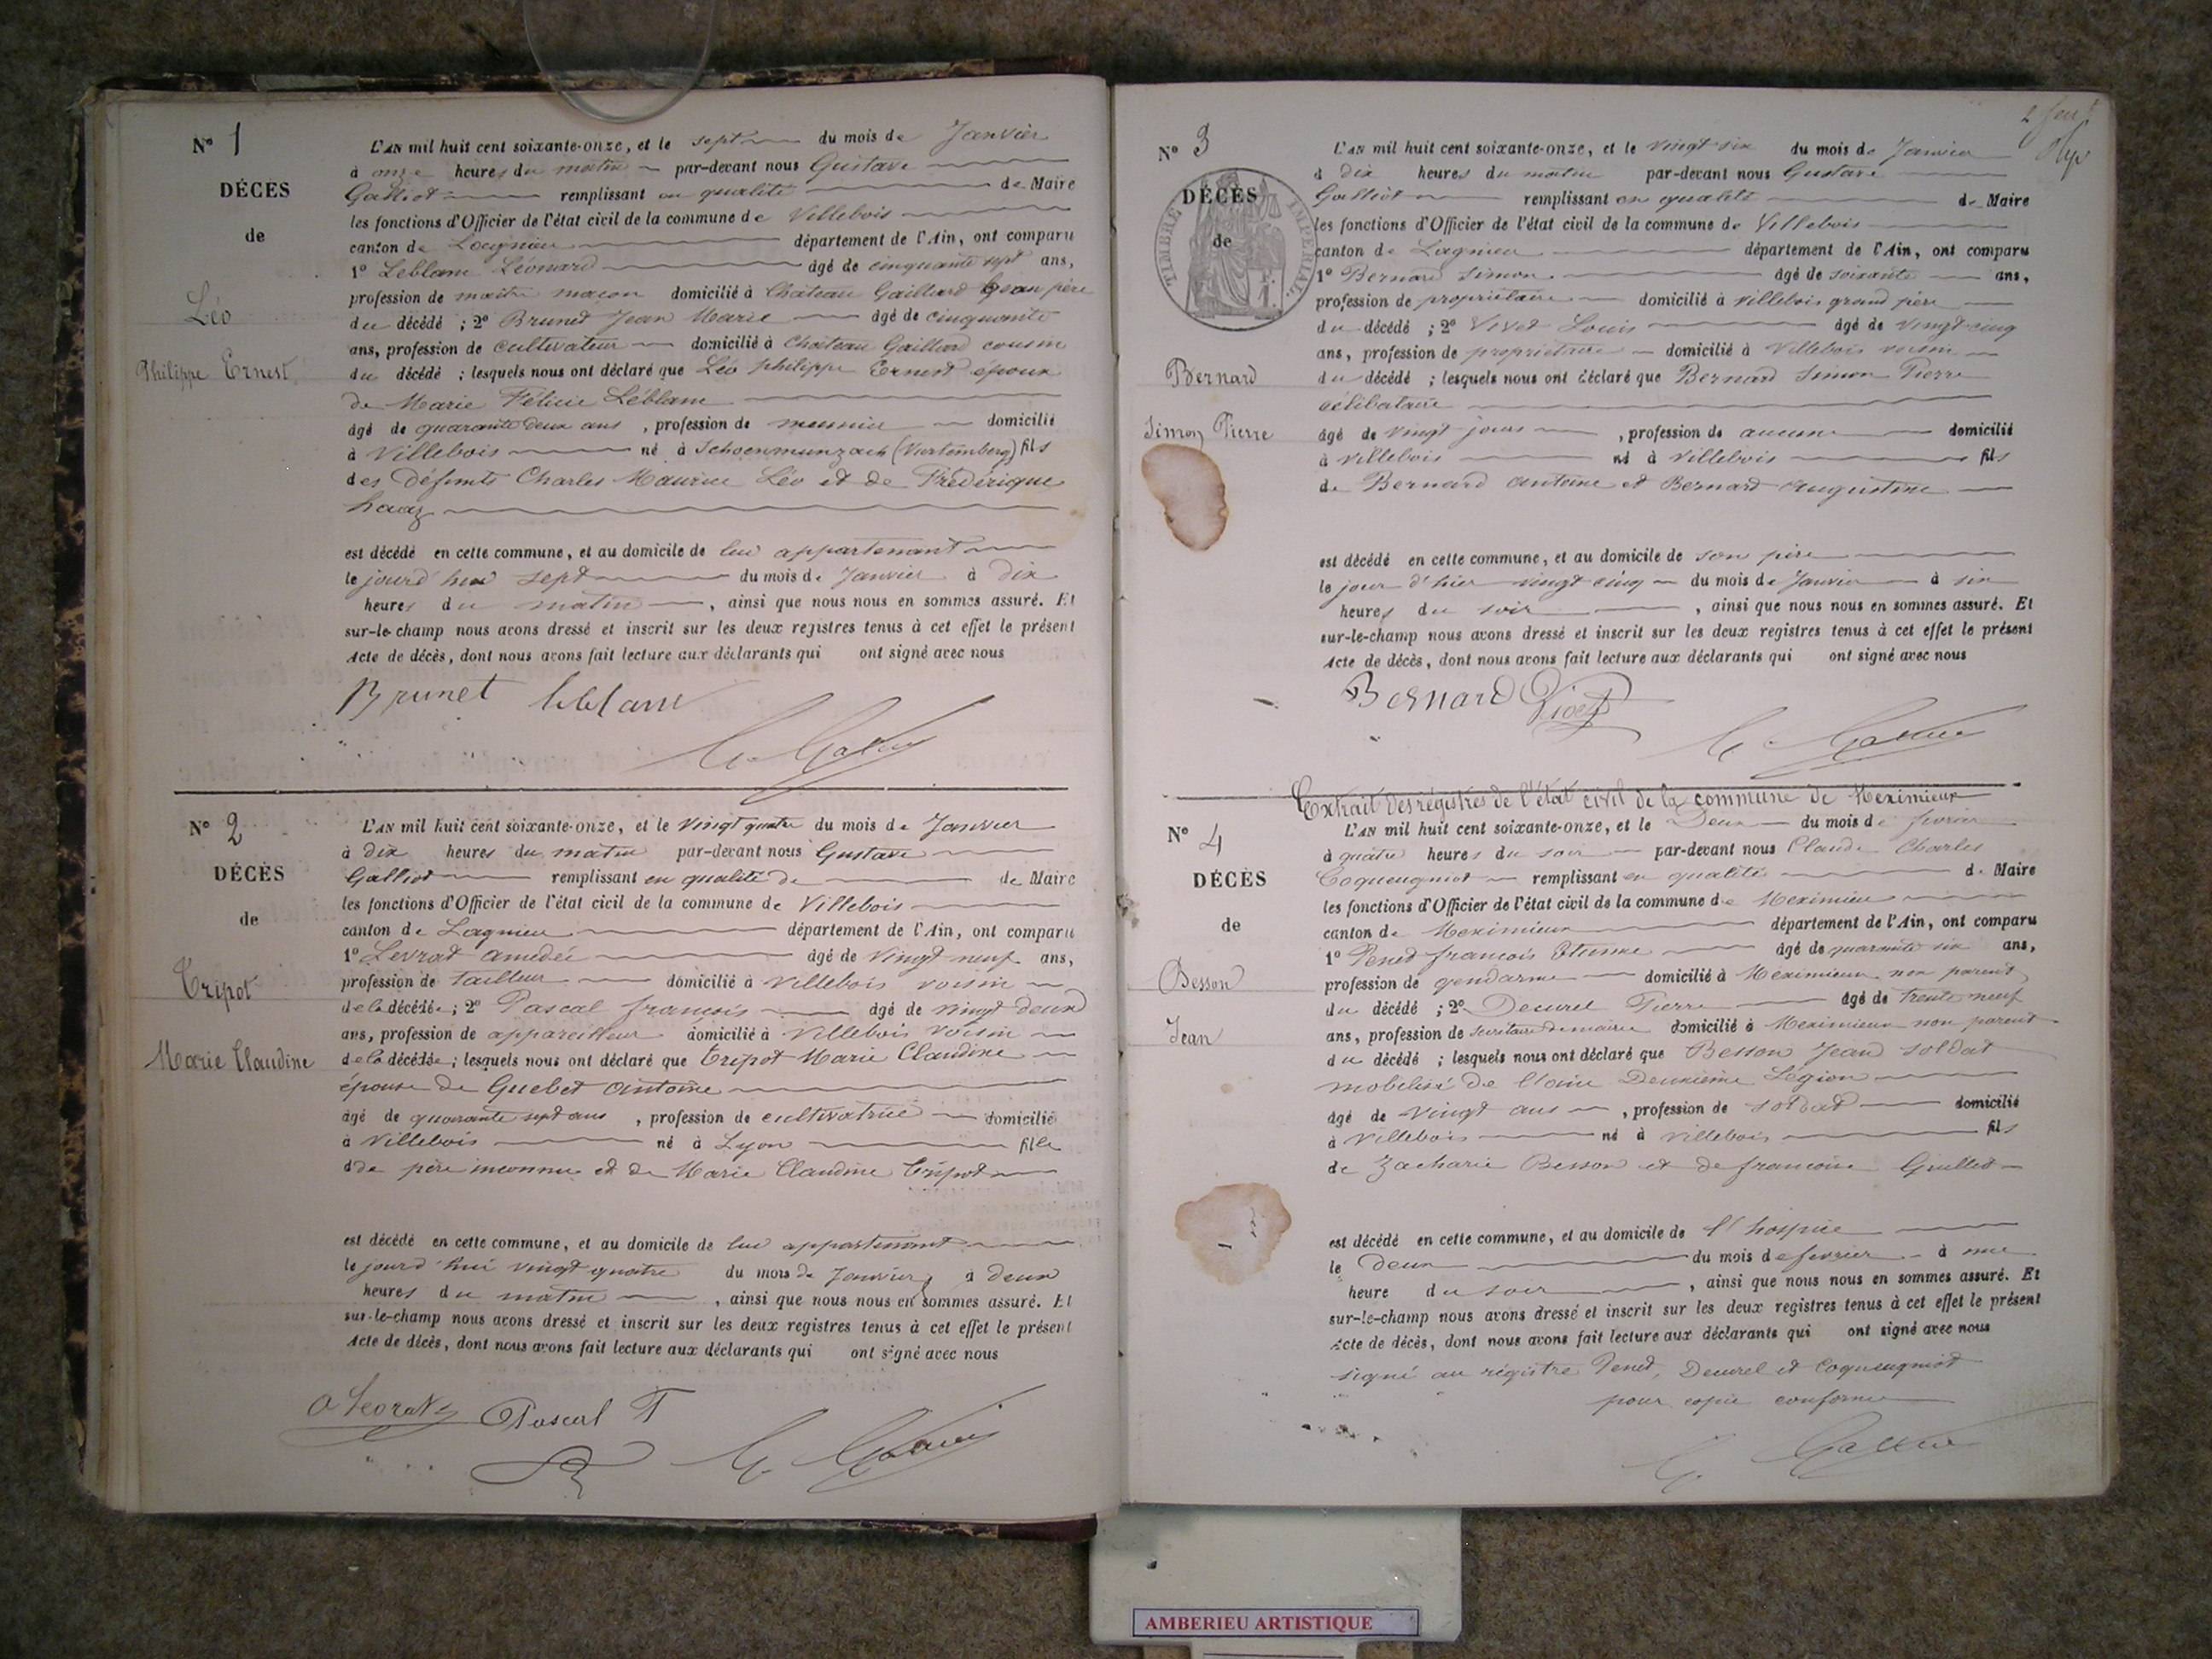 N° 1
DÉCÈS
de
Léo
Philippe Ernest
L'AN mil huit cent soixante-onze, et le sept du mois de Janvier
à onze heures du matin par-devant nous Gustave
Galliot remplissant en qualité de Maire
les fonctions d'Officier de l'état civil de la commune de Villebois
canton de Lagnieu département de l'Ain, ont comparu
1° Leblanc Léonard âgé de cinquante sept ans,
profession de maitre maçon domicilié à Château Gaillard beau père
du décédé ; 2° Brunet Jean Marie âgé de cinquante
ans, profession de cultivateur domicilié à Chateau Gaillard cousin
du décédé ; lesquels nous ont déclaré que Léo philippe Ernest époux
de Marie Félicie Léblanc
âgé de quarante deux ans , profession de meunier domicilié
à Villebois né à Schoenmunzach (Vurtemberg) fils
des défunts Charles Maurice Léo et de Frédérique
haag
est décédé en cette commune, et au domicile de lui appartenant
le jourd'hui sept du mois de Janvier à dix
heures du matin , ainsi que nous nous en sommes assuré. Et
sur-le-champ nous avons dressé et inscrit sur les deux registres tenus à cet effet le présent
Acte de décès, dont nous avons fait lecture aux déclarants qui ont signé avec nous
Brunet leblanc
N° 2
DÉCÈS
de
Tripot
Marie Claudine
L'AN mil huit cent soixante-onze, et le vingt quatre du mois de Janvier
à dix heures du matin par-devant nous Gustave
Galliot remplissant en qualité de de Maire
les fonctions d'Officier de l'état civil de la commune de Villebois
canton de Lagnieu département de l'Ain, ont comparu
1° Levrat amédée âgé de vingt neuf ans,
profession de tailleur domicilié à Villebois voisin
de la décédée ; 2° Pascal françois âgé de vingt deux
ans, profession de appareilleur domicilié à Villebois voisin
de la décédée ; lesquels nous ont déclaré que tripot Marie Claudine
épouse de Guebet Antoine
âgé de quarante sept ans , profession de cultivatrice domicilié
à Villebois né à Lyon fille
de père inconnu et de Marie Claudine Tripot
est décédé en cette commune, et au domicile de lui appartenant
le jourd'hui vingt quatre du mois de Janvier à deux
heures du matin , ainsi que nous nous en sommes assuré. Et
sur-le-champ nous avons dressé et inscrit sur les deux registres tenus à cet effet le présent
Acte de décès, dont nous avons fait lecture aux déclarants qui ont signé avec nous
A Levrat Pascal F
N° 3
DÉCÈS
de
TIMBRE IMPÉRIAL
Bernard
Simon Pierre
L'AN mil huit cent soixante-onze, et le vingt six du mois de Janvier
à dix heures du matin par-devant nous Gustave
Galliot remplissant en qualité de Maire
les fonctions d'Officier de l'état civil de la commune de Villebois
canton de Lagnieu département de l'Ain, ont comparu
1° Bernard Simon âgé de soixante ans,
profession de propriétaire domicilié à Villebois grand père
du décédé ; 2° Vivet Louis âgé de vingt cinq
ans, profession de propriétaire domicilié à Villebois voisin
du décédé ; lesquels nous ont déclaré que Bernard Simon Pierre
célibataire
âgé de vingt jours , profession de aucune domicilié
à villebois né à villebois fils
de Bernard antoine et Bernard augustine
est décédé en cette commune, et au domicile de son père
le jour d'hier vingt cinq du mois de Janvier à six
heures du soir , ainsi que nous nous en sommes assuré. Et
sur-le-champ nous avons dressé et inscrit sur les deux registres tenus à cet effet le présent
Acte de décès, dont nous avons fait lecture aux déclarants qui ont signé avec nous
Bernard Vivet
Extrait des régistres de l'état civil de la commune de Meximieux
N° 4
DÉCÈS
de
Besson
Jean
L'AN mil huit cent soixante-onze, et le Deux du mois de fevrier
à quatre heures du soir par-devant nous Claude Charles
Coqueugniot remplissant en qualité de Maire
les fonctions d'Officier de l'état civil de la commune de Meximieux
canton de Meximieux département de l'Ain, ont comparu
1° Penet françois Etienne âgé de quarante six ans,
profession de gendarme domicilié à Meximieux non parent
du décédé ; 2° Decurel Pierre âgé de trente neuf
ans, profession de secrétaire de mairie domicilié à Meximieux non parent
du décédé ; lesquels nous ont déclaré que Besson Jean soldat
mobilisé de l'ain Deuxième Légion
âgé de vingt ans , profession de soldat domicilié
à villebois né à villebois fils
de Zacharie Besson et de francoise Guillet
est décédé en cette commune, et au domicile de l'hospice
le Deux du mois de fevrier à une
heure du soir , ainsi que nous nous en sommes assuré. Et
sur-le-champ nous avons dressé et inscrit sur les deux registres tenus à cet effet le présent
Acte de décès, dont nous avons fait lecture aux déclarants qui ont signé avec nous
signé au régistre Penet, Decurel et Coqueugniot
pour copie conforme
AMBERIEU ARTISTIQUE